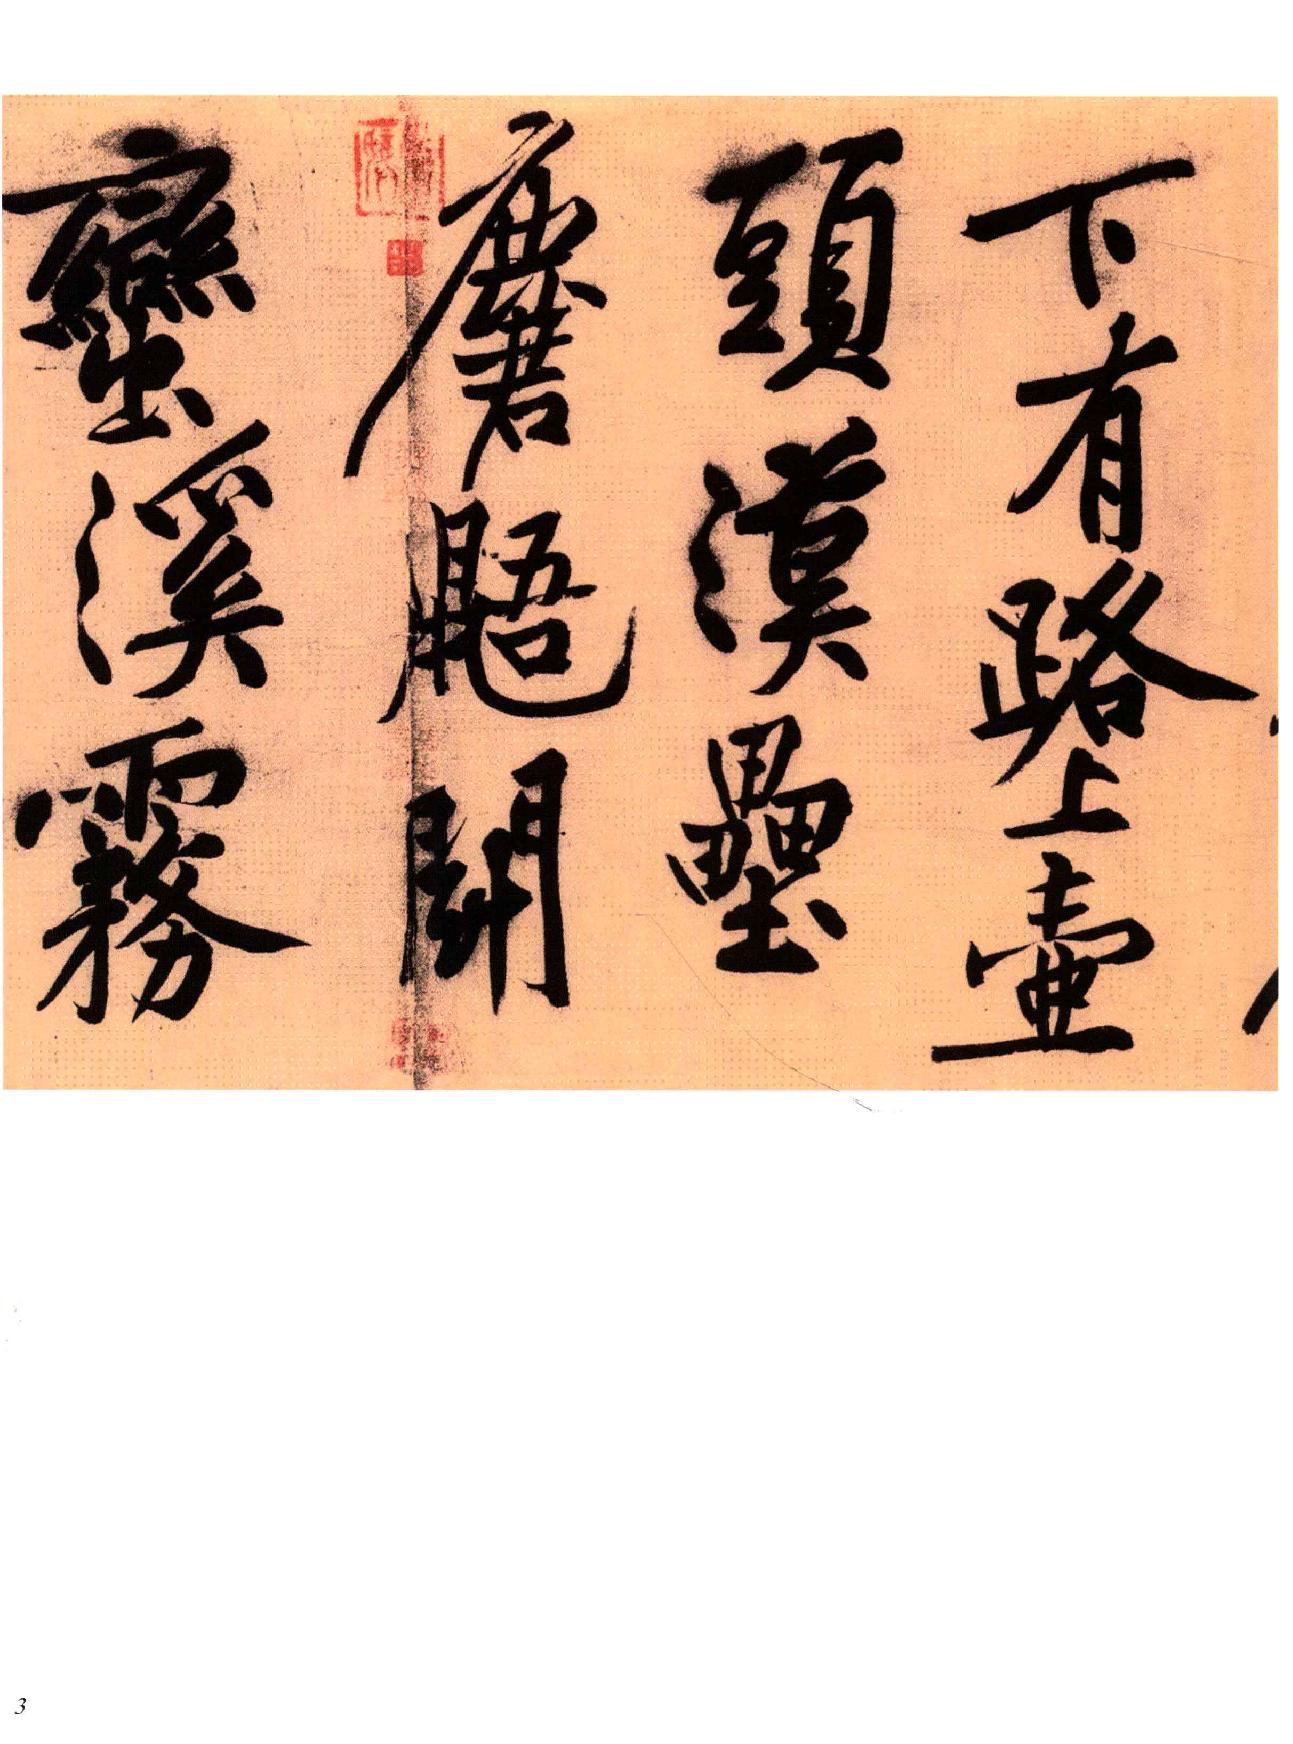 下有路上壺
頭漢壘
麏鼯鬥
蠻溪霧
3